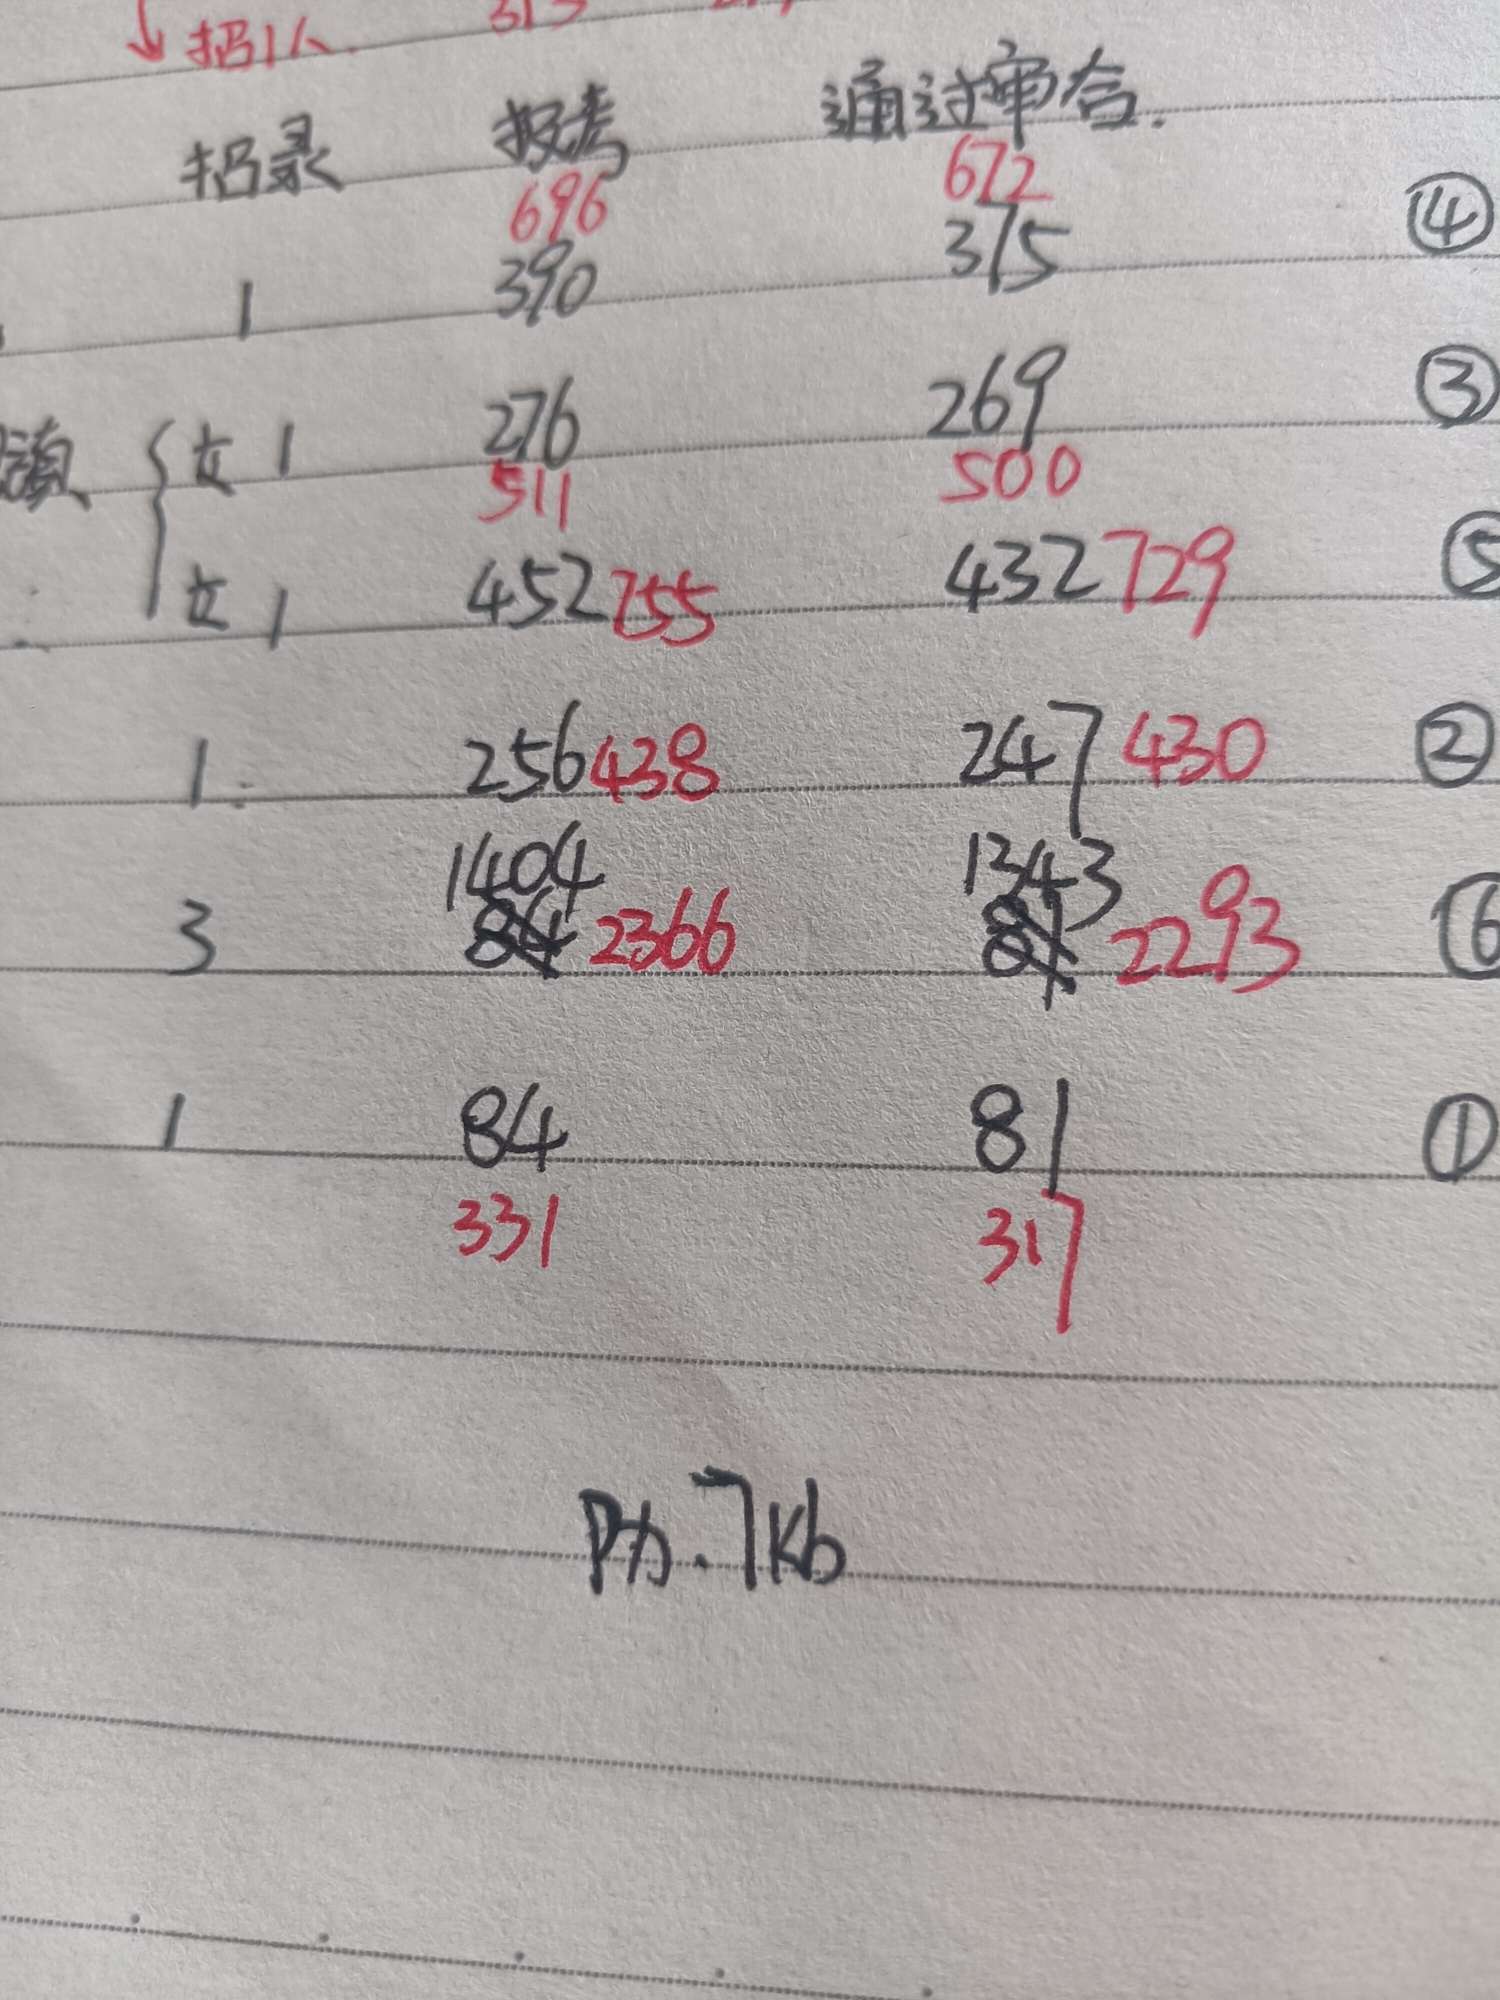 ↓ 招1人.
招录 报考 通过审合.
696 672
1 390 375 ④
女1 276 269 ③
511 500
女1 452 755 432 729 ⑤
1 256 438 247 430 ②
1404 1343
3 2366 2293 ⑥
1 84 81 ①
331 317